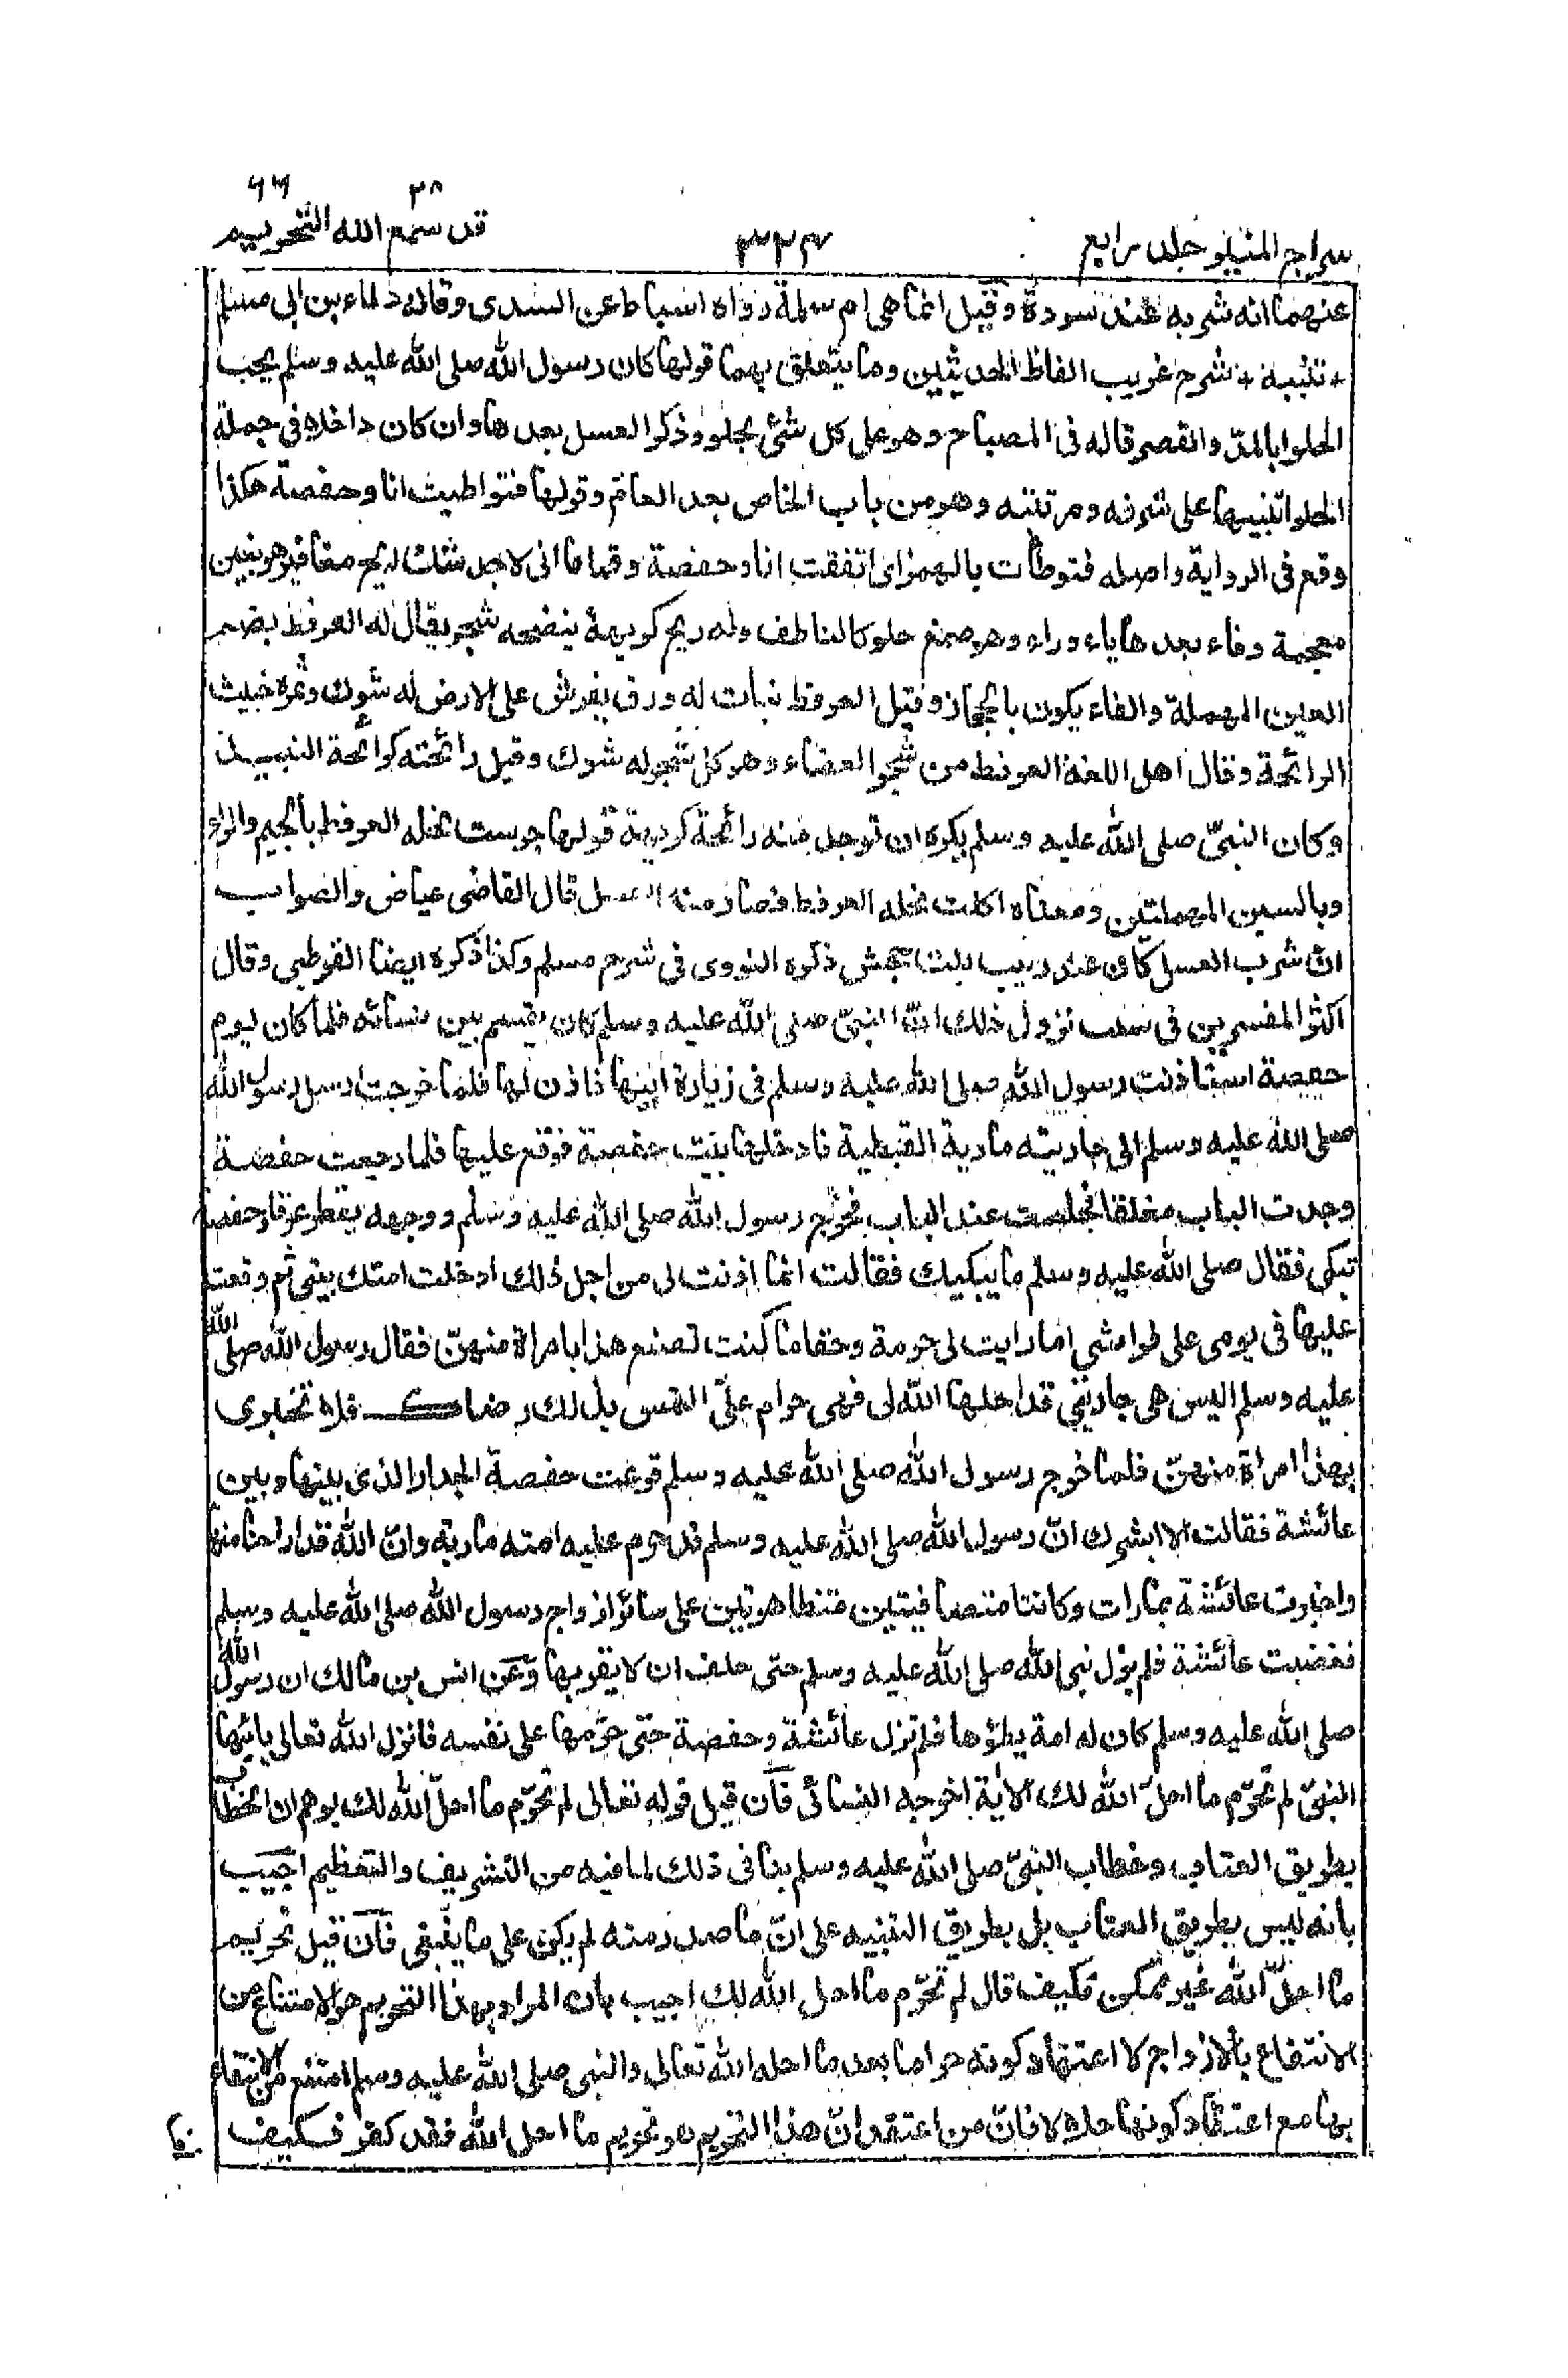 ٢٨ ٦٦
سراج المنير جلد رابع ٣٢٤ قد سمع الله التحريم
عنهما انه شربه عند سودة وقيل انما هى ام سلمة رواه اسباط عن السدى وقاله عطاء بن ابى مسلم
* تنبيه * شرح غريب الفاظ الحديثين وما يتعلق بهما قولها كان رسول الله صلى الله عليه وسلم يحب
الحلوا بالمدّ والقصر قاله فى المصباح وهو على كل شئ يحلو وذكر العسل بعدها وان كان داخلا فى جملة
الحلوا تنبيها على شرفه ومرتبته وهو من باب الخاص بعد العام وقولها فتواطيت انا وحفصة هكذا
وقع فى الرواية واصله فتوطأت بالهمز اى اتفقت انا وحفصة وقولها انى لاجد منك ريح مغافير هو بغين
معجمة وفاء بعدها ياء وراء وهو صمغ حلو كالناطف وله ريح كريهة ينضحه شجر يقال له العرفط بضم
العين المهملة والفاء يكون بالحجاز وقيل العرفط نبات له ورق يفرش على الارض له شوك وثمره خبيث
الرائحة وقال اهل اللغة العرفط من شجر العضاء وهو كل شجر له شوك وقيل رائحته كرائحة النبيذ
وكان النبىّ صلى الله عليه وسلم يكره ان توجد منه رائحة كريهة قولها جرست نحله العرفط بالجيم والراء
وبالسين المهملتين ومعناه اكلت نحله العرفط فصار منه العسل قال القاضى عياض والصواب
انّ شرب العسل كان عند زينب بنت جحش ذكره النووى فى شرح مسلم وكذا ذكره ايضا القرطبى وقال
اكثر المفسرين فى سبب نزول ذلك انّ النبىّ صلى الله عليه وسلم كان يقسم بين نسائه فلما كان يوم
حفصة استأذنت رسول الله صلى الله عليه وسلم فى زيارة ابيها فاذن لها فلما خرجت ارسل رسول الله
صلى الله عليه وسلم الى جاريته مارية القبطية فادخلها بيت حفصة فوقع عليها فلما رجعت حفصة
وجدت الباب مغلقا فجلست عند الباب فخرج رسول الله صلى الله عليه وسلم ووجهه يقطر عرقا وحفصة
تبكى فقال صلى الله عليه وسلم ما يبكيك فقالت انما اذنت لى من اجل ذلك ادخلت امتك بيتى ثم وقعت
عليها فى يومى على فراشى اما رايت لى حرمة وحقا ما كنت تصنع هذا بامراة منهنّ فقال رسول الله صلى الله
عليه وسلم اليس هى جاريتى قد احلها الله لى فهى حرام علىّ التمس بذلك رضاك فلا تخبرى
بهذا امراة منهنّ فلما خرج رسول الله صلى الله عليه وسلم قرعت حفصة الجدار الذى بينها وبين
عائشة فقالت الا ابشرك انّ رسول الله صلى الله عليه وسلم قد حرم عليه امته مارية وانّ الله قد اراحنا منها
واخبرت عائشة بما رات وكانتا متصافيتين متظاهرتين على سائر ازواج رسول الله صلى الله عليه وسلم
فغضبت عائشة فلم يزل نبى الله صلى الله عليه وسلم حتى حلف ان لا يقربها وعن انس بن مالك ان رسول الله
صلى الله عليه وسلم كان له امة يطؤها فلم تزل عائشة وحفصة حتى حرّمها على نفسه فانزل الله تعالى يايها
النبىّ لم تحرّم ما احلّ الله لك الاية اخرجه النسائى فان قيل قوله تعالى لم تحرّم ما احلّ الله لك يوهم ان الخطاب
بطريق العتاب وخطاب النبىّ صلى الله عليه وسلم ينافى ذلك لما فيه من التشريف والتعظيم اجيب
بانه ليس بطريق العتاب بل بطريق التنبيه على انّ ما صدر منه لم يكن على ما ينبغى فان قيل تحريم
ما احلّ الله غير ممكن فكيف قال لم تحرّم ما احل الله لك اجيب بان المراد بهذا التحريم هو الامتناع من
الانتفاع بالازواج لا اعتقاد كونه حراما بعد ما احله الله تعالى والنبى صلى الله عليه وسلم امتنع من الانتفاع
بها مع اعتقاد كونها حلالا فانّ من اعتقد انّ هذا التحريم هو تحريم ما احل الله فقد كفر فكيف